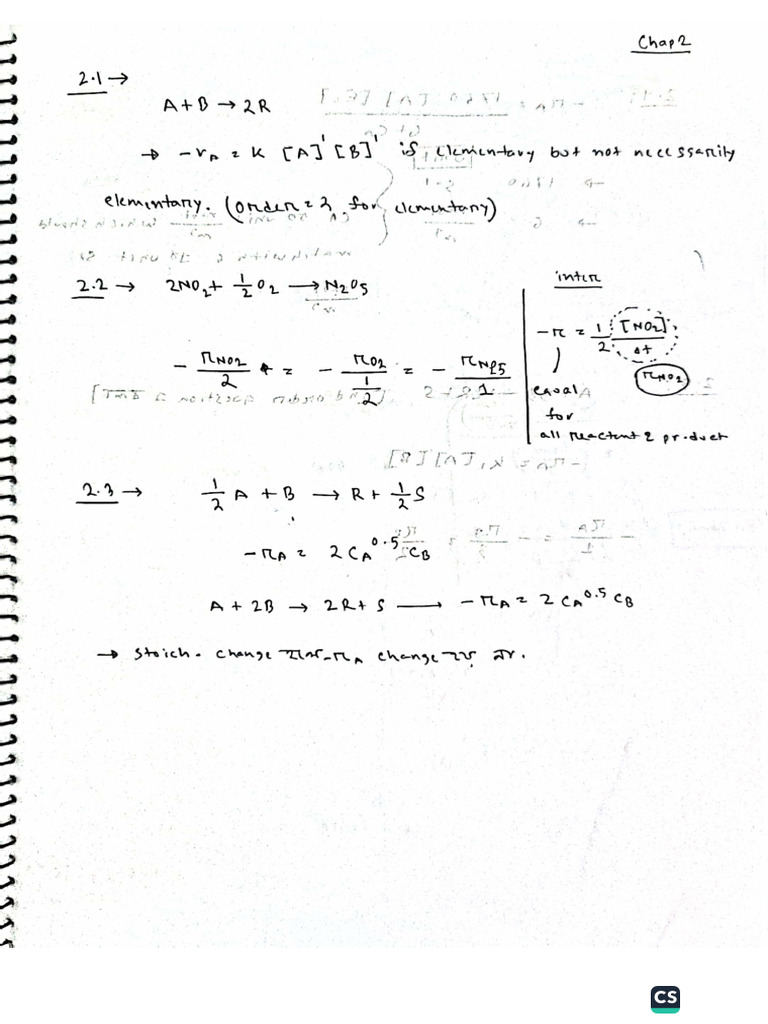 Chap 2
2.1 →
A + B → 2R
→ -rA = K [A]' [B]' is elementary but not necessarily
elementary. (order = 2 for elementary)
2.2 → 2NO2 + 1/2 O2 → N2O5
- rNO2/2 = - rO2/(1/2) = - rN2O5/1
inter
-r = 1/2 [NO2]/Δt
rNO2
equal
for
all reactant & product
2.3 → 1/2 A + B → R + 1/2 S
-rA = 2 CA^0.5 CB
A + 2B → 2R + S —— -rA = 2 CA^0.5 CB
→ stoich. change হলে -rA change হয় না.
CS